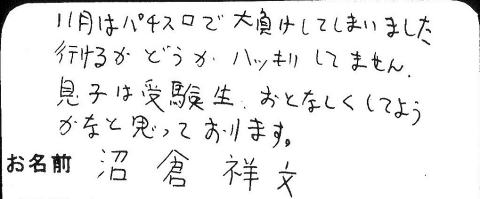 11月はパチスロで大負けしてしまいました
行けるかどうか ハッキリしてません.
息子は受験生.おとなしくしてよう
かなと思っております。
お名前 沼倉祥文